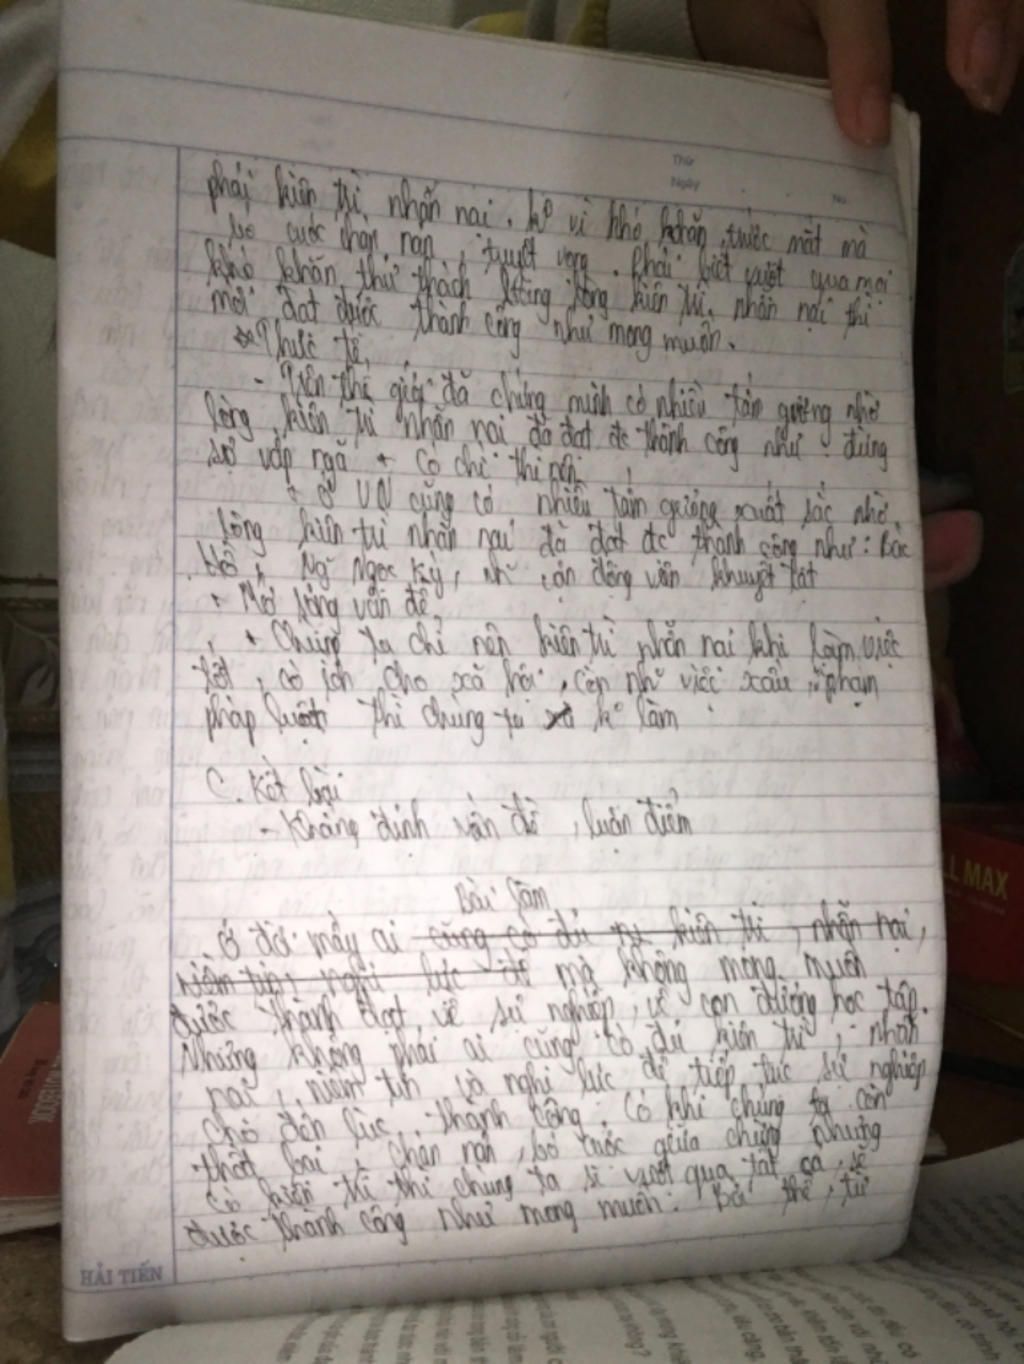 Thứ
Ngày
No.
phải kiên trì nhẫn nại. ko vì khó khăn trước mắt mà
bỏ cuộc chán nản, tuyệt vọng. Phải biết vượt qua mọi
khó khăn, thử thách bằng lòng kiên trì, nhẫn nại thì
mới đạt được thành công như mong muốn.
* Thực tế
- Trên thế giới đã chứng minh có nhiều tấm gương nhờ
lòng kiên trì nhẫn nại đã đạt đc thành công như: đừng
sợ vấp ngã + Có chí thì nên
+ Ở VN cũng có nhiều tấm gương xuất sắc nhờ
lòng kiên trì nhẫn nại đã đạt đc thành công như: Bác
Hồ, Ng~ Ngọc Ký, nh~ vận động viên khuyết tật
+ Mở rộng vấn đề
+ Chúng ta chỉ nên kiên trì nhẫn nại khi làm việc
tốt, có ích cho xã hội, còn nh~ việc xấu, phạm
pháp luật thì chúng ta ko làm
C. Kết bài
- Khẳng định vấn đề, luận điểm
Bài làm
Ở đời mấy ai cũng có đủ sự kiên trì, nhẫn nại,
niềm tin, nghị lực để mà không mong muốn
được thành đạt về sự nghiệp, về con đường học tập.
Nhưng không phải ai cũng có đủ kiên trì, nhẫn
nại, niềm tin và nghị lực để tiếp tục sự nghiệp
cho đến lúc thành công. Có khi chúng ta còn
thất bại, chán nản, bỏ cuộc giữa chừng nhưng
có kiên trì thì chúng ta sẽ vượt qua tất cả, sẽ
được thành công như mong muốn. Bởi thế, từ
HẢI TIẾN
LL MAX